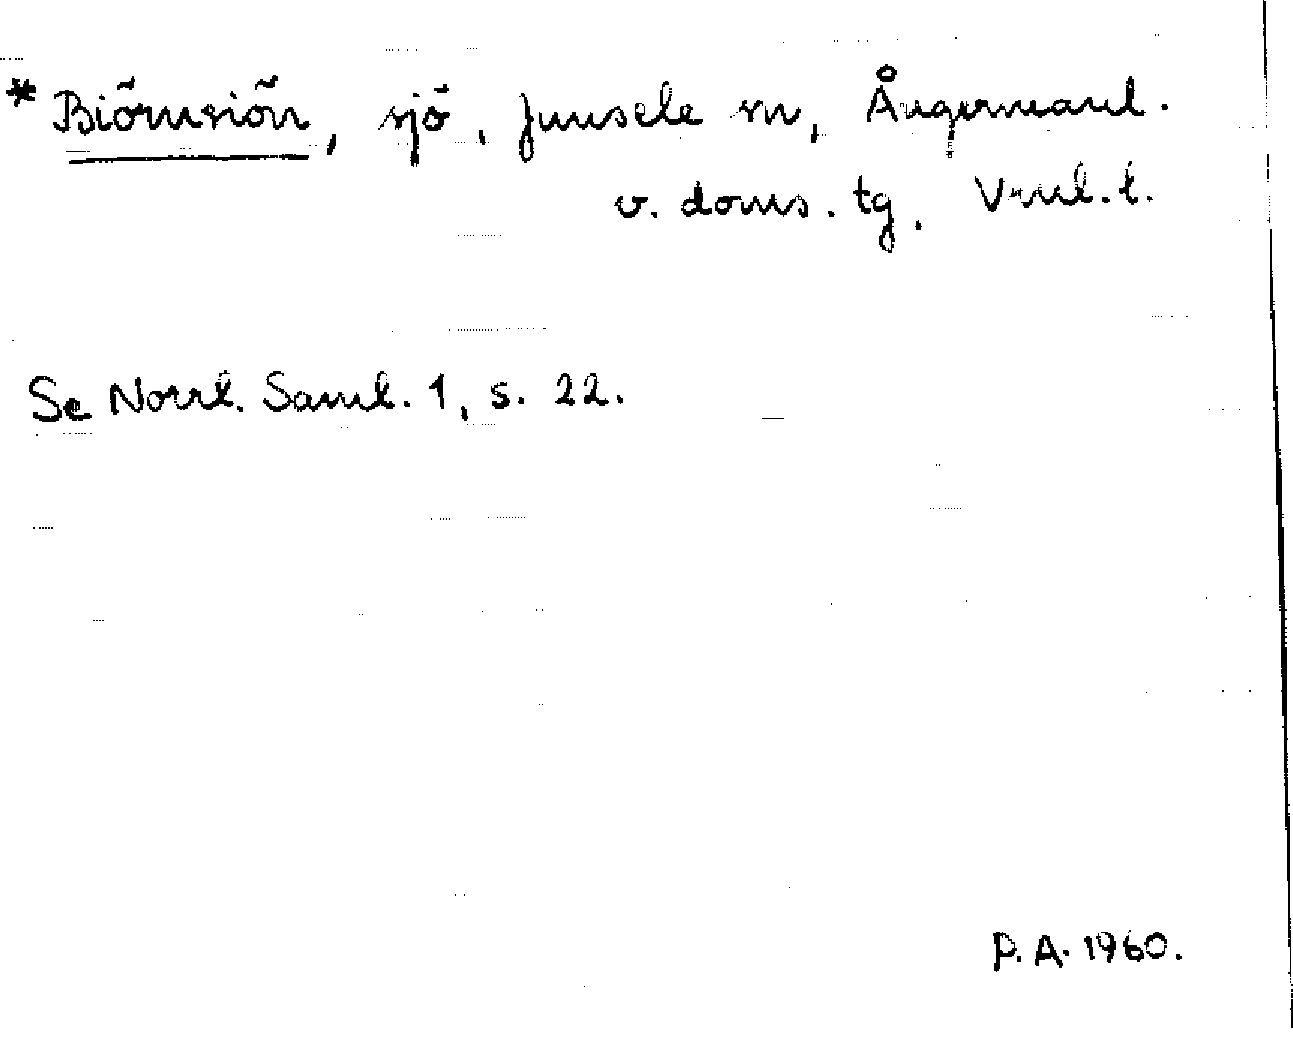 * Biörnsiön, sjö, Junsele sn, Ångermanl.
v. doms. tg, Vnl. l.
Se Norrl. Saml. 1, s. 22.
P. A. 1960.